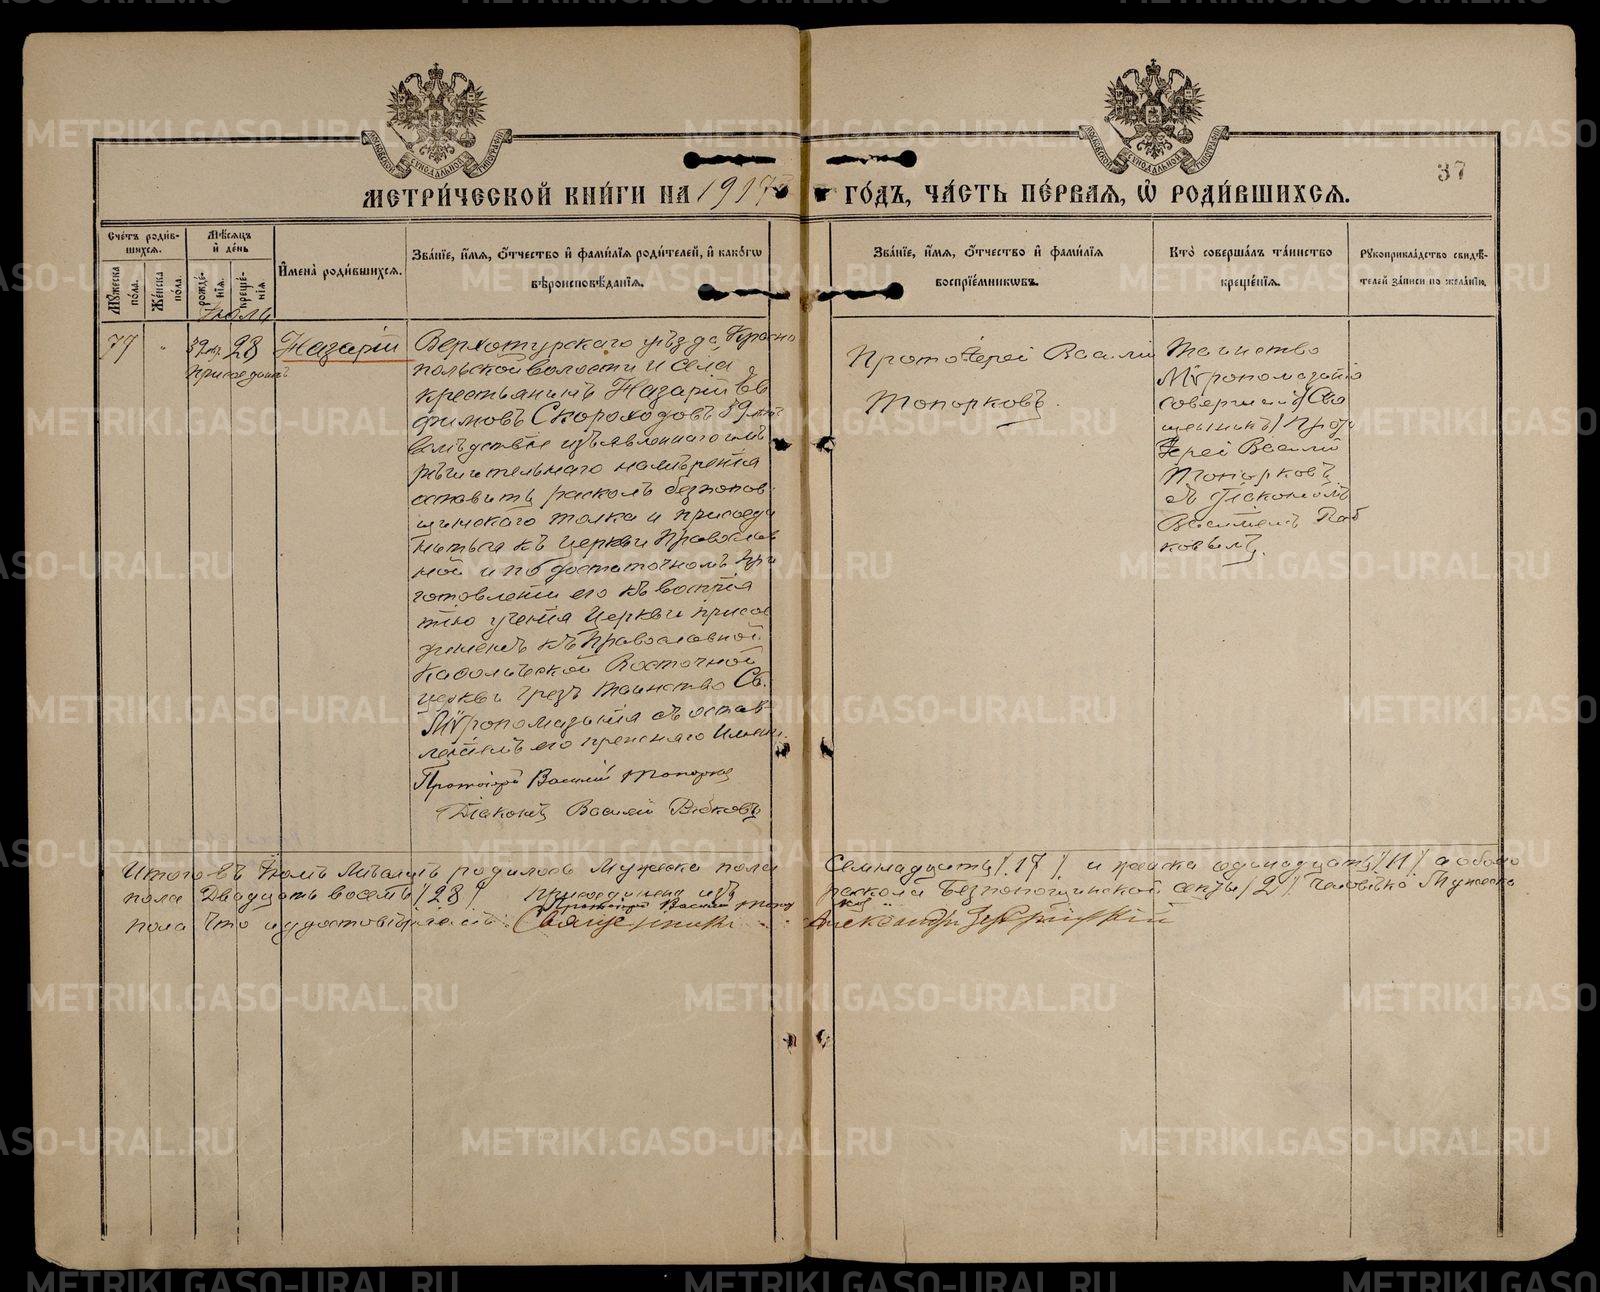 МЕТРИ́ЧЕСКОЙ КНИ́ГИ НА 1917
ГО́ДЪ, ЧА́СТЬ ПЕ́РВАѦ, Ѡ҆ РОДИ́ВШИХСѦ.
37
Сче́тъ роди́в-
шихсѧ.
Мꙋ́жеска по́ла.
Же́нска по́ла.
Мѣ́сѧцъ
и҆ де́нь
рожде́-
нїѧ.
креще́-
нїѧ.
И҆мена̀ роди́вшихсѧ.
Зва́нїе, и҆́мѧ, ѻ҆́тчество и҆ фами́лїѧ роди́телей, и҆ како́гѡ
вѣроисповѣ́данїѧ.
Зва́нїе, и҆́мѧ, ѻ҆́тчество и҆ фами́лїѧ
воспрїе́мникѡвъ.
Кто̀ соверша́лъ та́инство
креще́нїѧ.
Рꙋкоприкла́дство свидѣ́-
телей за́писи по жела́нїю.
Іюль
77
28
Назарій
Верхотурскаго уѣзда Красно
польской волости и села
крестьянинъ Назарій Ев
фимовъ Скороходовъ 59 лѣтъ
вслѣдствіе изъявленнаго имъ
рѣшительнаго намѣренія
оставить расколъ безпопов
щинскаго толка и присоеди
ниться къ церкви Православ
ной и по достаточномъ при
готовленіи его къ воспрія
тію ученія Церкви присое
диненъ къ Православной
Каѳолической Восточной
церкви чрезъ таинство Св.
Мѵропомазанія съ остав
леніемъ его прежняго имени.
Протоіерей Василій Топорков
Діаконъ Василій
Протоіерей Василій
Топорковъ.
Таинство
Мѵропомазанія
совершилъ Свя
щенникъ Прото
іерей Василій
Топорковъ
съ діакономъ
Василіемъ
ковымъ.
Итого въ Іюлѣ Мѣсяцѣ родилось Мужеска пола
Семнадцать /17/ и женска одинадцать /11/ а обоего
пола Двадцать восемь /28/ присоединено изъ
раскола Безпоповщинской секты /2/ человѣка Мужеска
Протоіерей Василій Топорков
пола Что и удостовѣряемъ: Священникъ Александръ
METRIKI.GASO-URAL.RU